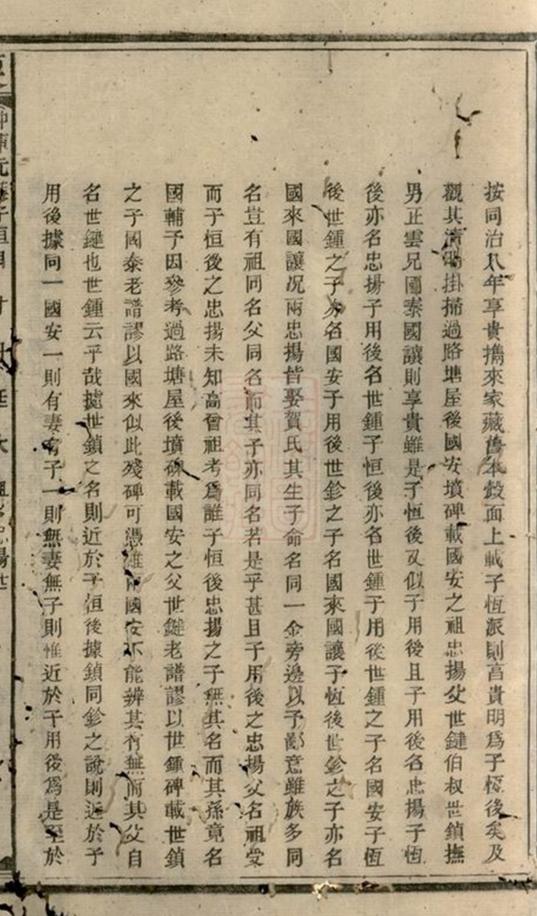 按同治八年享貴攜來家藏舊本殼面上載子恆派則高貴明為子恆後矣及
觀其清明掛掃過路塘屋後國安墳碑載國安之祖忠揚父世鏈伯叔世鎖撫
男正雲兄國泰國讓則享貴雖是子恆後又似子用後且子用後名忠揚子恆
後亦名忠揚子用後名世鍾子恒後亦名世鍾子用後世鍾之子名國安子恆
後世鍾之子亦名國安子用後世鉁之子名國來國讓子恆後世鉁之子亦名
國來國讓况兩忠揚皆娶賀氏其生子命名同一金旁邊以予鄙意雖族多同
名豈有祖同名父同名而其子亦同名若是乎甚且子用後之忠揚父名祖受
而子恒後之忠揚未知高曾祖考為誰子恒後忠揚之子無其名而其孫竟名
國輔予因參考過路塘屋後墳碑載國安之父世鏈老譜謬以世鍾碑載世鎖
之子國泰老譜謬以國來似此殘碑可憑雖國安不能辨其有無而其父自
名世鏈也世鍾云乎哉據世鎖之名則近於子恒後據鎖同鉁之說則近於子
用後據同一國安一則有妻有子一則無妻無子則惟近於子用後為是至於